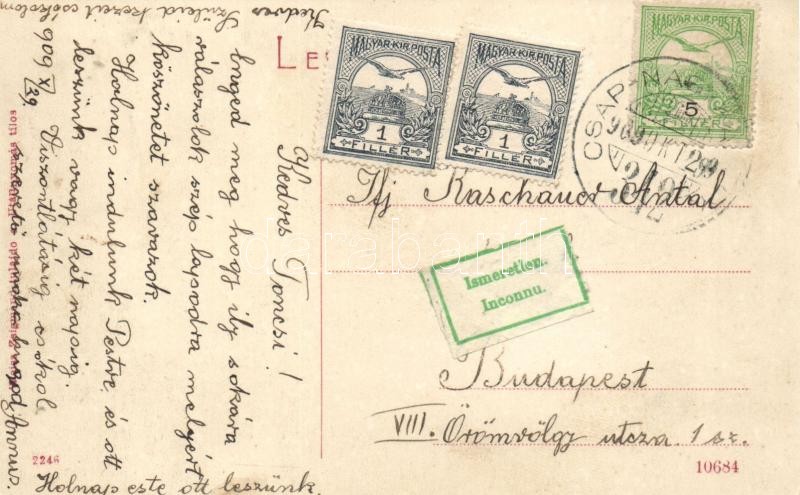 Kedves Toncsi!
Enged meg hogy ily sokára
válaszolok szép lapodra melyért
köszönetet szavazok.
Holnap indulunk Pestre, és ott
leszünk vagy két napig.
Viszontlátásig csókol
szerető Annus.
909 X/29
Kedves Szüleid kezeit csókolom
Holnap este ott leszünk.
MAGYAR KIR. POSTA
1
FILLÉR
MAGYAR KIR. POSTA
1
FILLÉR
MAGYAR KIR. POSTA
5
CSAP-NAG
909 OKT 29
Ifj Kaschauer Antal
Ismeretlen.
Inconnu.
Budapest
VIII. Örömvölgy utcza 1 sz.
2246
10684
darabanth